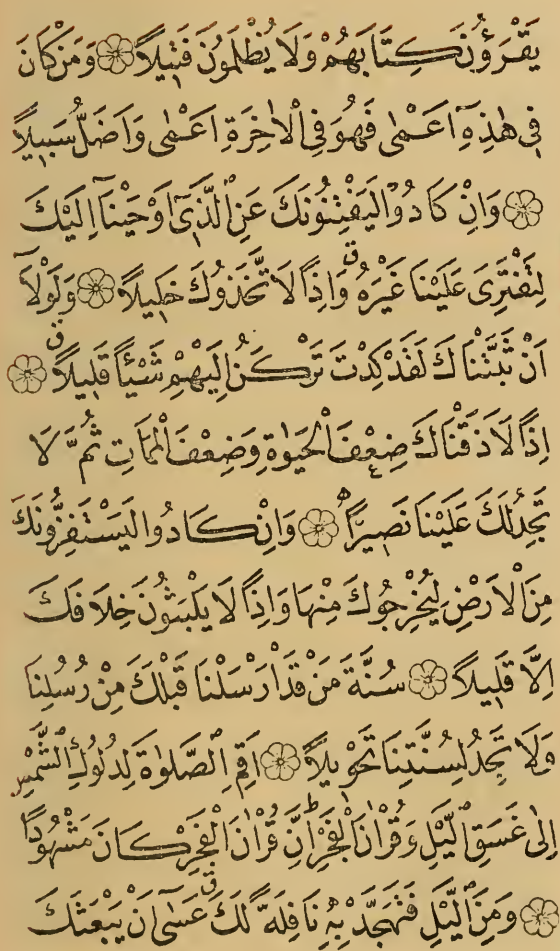 يَقْرَؤُنَ كِتَابَهُمْ وَلَا يُظْلَمُونَ فَتِيلًا ۝ وَمَنْ كَانَ
فِي هٰذِهِٓ اَعْمٰى فَهُوَ فِي الْاٰخِرَةِ اَعْمٰى وَاَضَلُّ سَبِيلًا
۝ وَاِنْ كَادُوا لَيَفْتِنُونَكَ عَنِ الَّذِٓي اَوْحَيْنَٓا اِلَيْكَ
لِتَفْتَرِيَ عَلَيْنَا غَيْرَهُ ۗ وَاِذًا لَاتَّخَذُوكَ خَلِيلًا ۝ وَلَوْلَٓا
اَنْ ثَبَّتْنَاكَ لَقَدْ كِدْتَ تَرْكَنُ اِلَيْهِمْ شَيْئًا قَلِيلًا ۗ ۝
اِذًا لَاَذَقْنَاكَ ضِعْفَ الْحَيٰوةِ وَضِعْفَ الْمَمَاتِ ثُمَّ لَا
تَجِدُ لَكَ عَلَيْنَا نَصِيرًا ۝ وَاِنْ كَادُوا لَيَسْتَفِزُّونَكَ
مِنَ الْاَرْضِ لِيُخْرِجُوكَ مِنْهَا وَاِذًا لَا يَلْبَثُونَ خِلَافَكَ
اِلَّا قَلِيلًا ۝ سُنَّةَ مَنْ قَدْ اَرْسَلْنَا قَبْلَكَ مِنْ رُسُلِنَا
وَلَا تَجِدُ لِسُنَّتِنَا تَحْوِيلًا ۝ اَقِمِ الصَّلٰوةَ لِدُلُوكِ الشَّمْسِ
اِلٰى غَسَقِ الَّيْلِ وَقُرْاٰنَ الْفَجْرِ ۜ اِنَّ قُرْاٰنَ الْفَجْرِ كَانَ مَشْهُودًا
۝ وَمِنَ الَّيْلِ فَتَهَجَّدْ بِهِ نَافِلَةً لَكَ ۗ عَسٰٓى اَنْ يَبْعَثَكَ